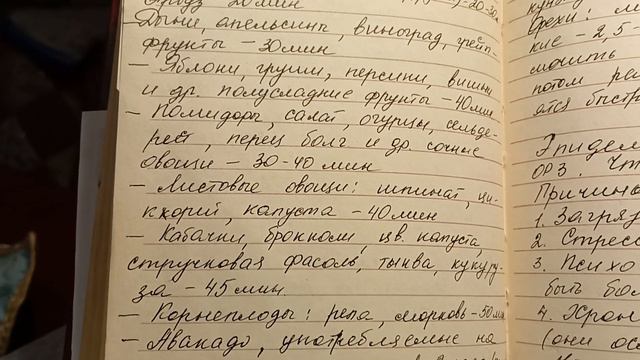 20 мин
Дыни, апельсины, виноград, грейп-
фрукты - 30 мин
- Яблоки, груши, персики, вишни
и др. полусладкие фрукты - 40 мин
- Помидоры, салат, огурцы, сельде-
рей, перец болг и др. сочные
овощи - 30-40 мин
- Листовые овощи: шпинат, ци-
корий, капуста - 40 мин
- Кабачки, брокколи, цв. капуста,
струсковая фасоль, тыква, кукуру-
за - 45 мин.
- Корнеплоды: репа, морковь - 50 мин
- Авакадо, употребляемые на
Орехи:
кие - 2,5
мочить
потом
ОРЗ. Чт
Причины
1. Загряз
2. Стресс
3. Психо
быть бол
4. Хрон
(они